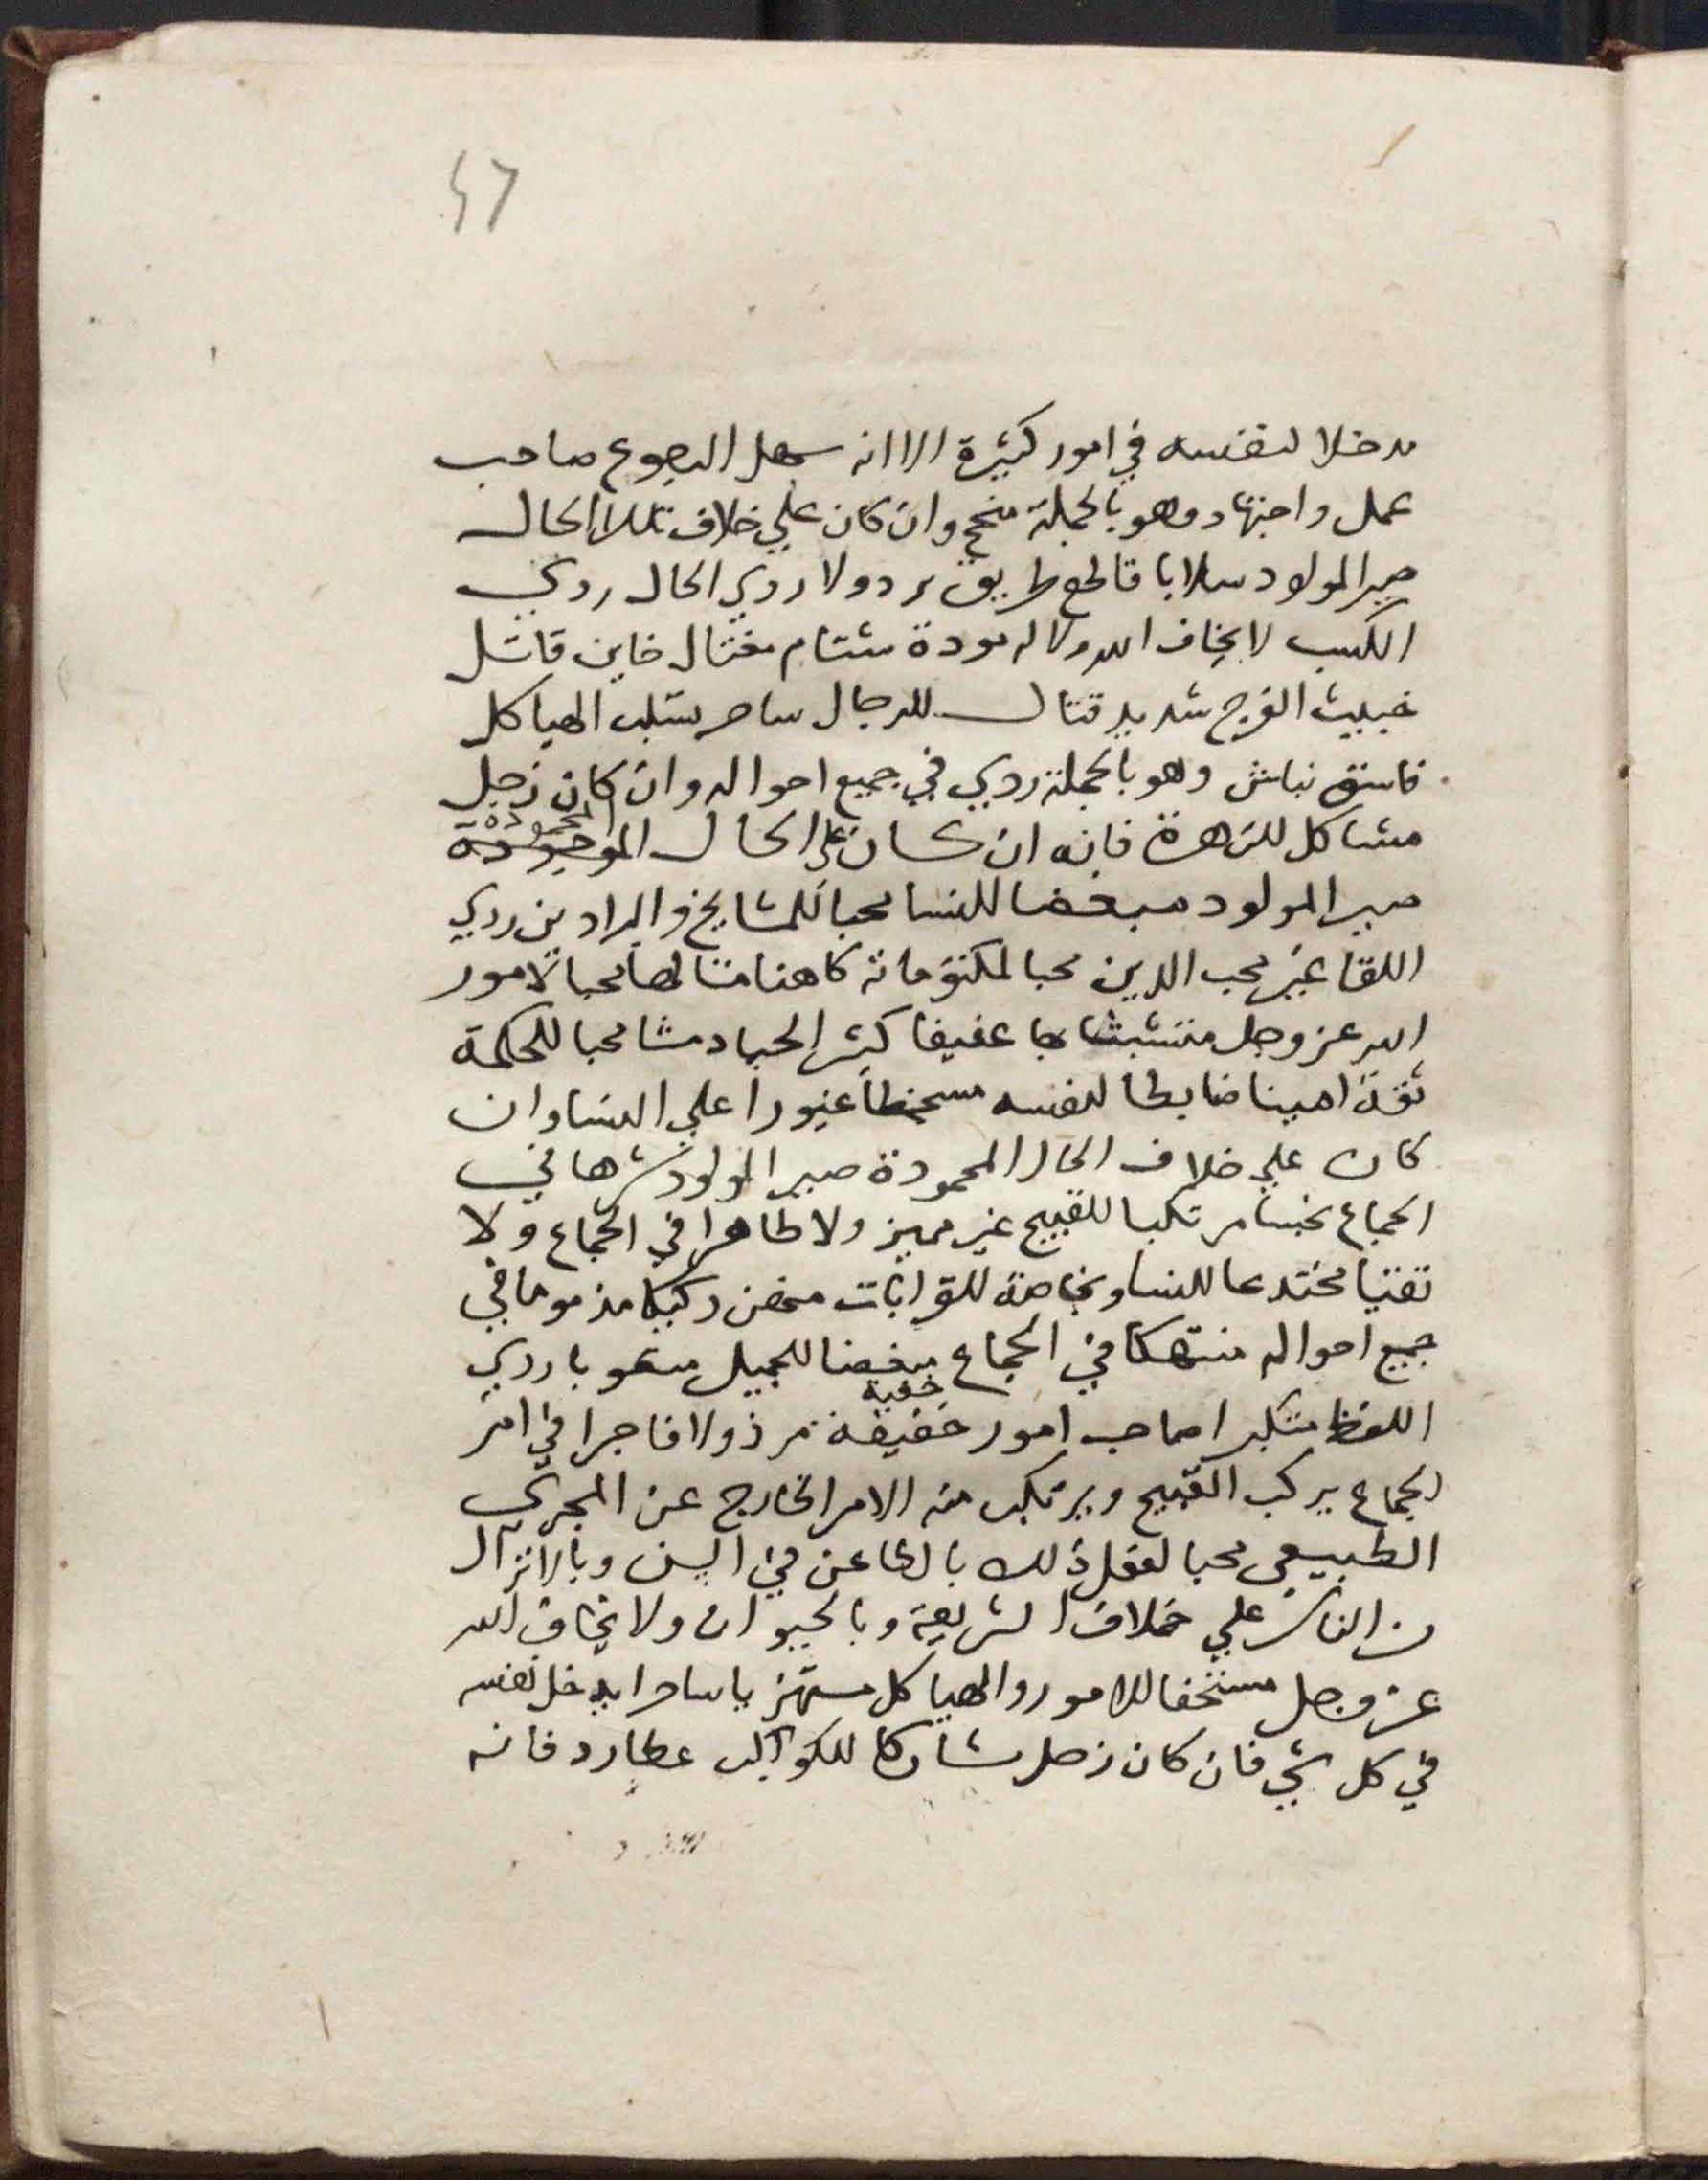 ٤٦
مدخلا لنفسه في امور كثيرة الا انه سهل الرجوع صاحب
عمل واجتهاد وهو بالجملة منجح وان كان علي خلاف تلك الحال
صير المولود سلابا قاطع طريق ردي الحال ردي
الكسب لا يخاف الله ولا له مودة شتام مغتال خاين قاتل
خبيث الفرج شديد قتال للرجال ساحر يسلب الهياكل
فاسق نباش وهو بالجملة ردي في جميع احواله وان كان زحل
مشاكل للزهرة فانه ان كان علي الحال الموجودة المحمودة
صير المولود مبغضا للنسا محبا للمشايخ ردي
اللقا غير محب الدين محبا لمكتوماته كاهنا محبا لامور
الله عز وجل متشبثا بها عفيفا كثير الحيا محبا للحكمة
ثقة امينا ضابطا لنفسه غيورا علي النسا وان
كان علي خلاف الحال المحمودة صير المولود شرها في
الجماع نجسا مرتكبا للقبيح غير مميز ولا طاهرا في الجماع ولا
نقيا مختدعا للنسا وبخاصة للقرابات ركيكا مذموما في
جميع احواله منتهكا في الجماع مبغضا للجميل ردي
اللفظ متكبرا صاحب امور خفيفة خفية مرذولا فاجرا في امر
الجماع يركب القبيح ويرتكب منه الامر الخارج عن المجري
الطبيعي محبا لفعل ذلك بالطاعن في السن وبالانزال
من الناس علي خلاف الشريعة وبالحيوان ولا يخاف الله
عز وجل مستخفا للامور والهياكل مستهزيا ساحرا يدخل نفسه
في كل شي فان كان زحل مشاركا للكواكب عطارد فانه